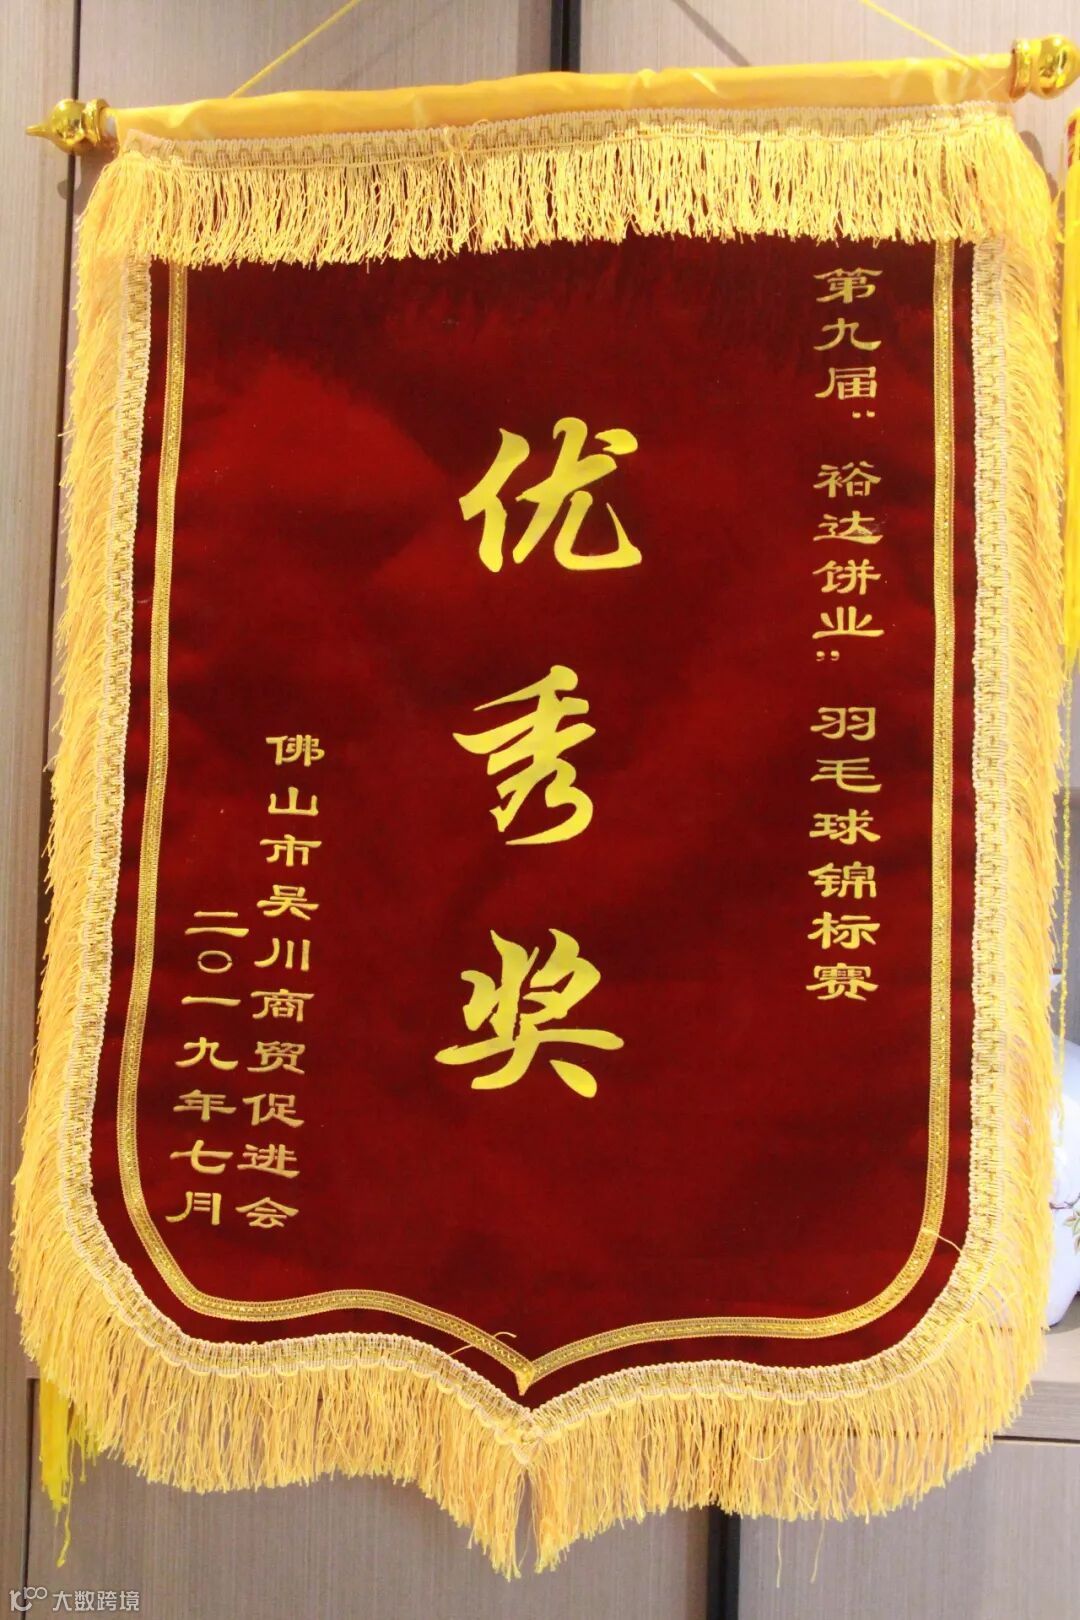 第九届“裕达饼业”羽毛球锦标赛
优秀奖
佛山市吴川商贸促进会
二〇一九年七月
10100 大数跨境